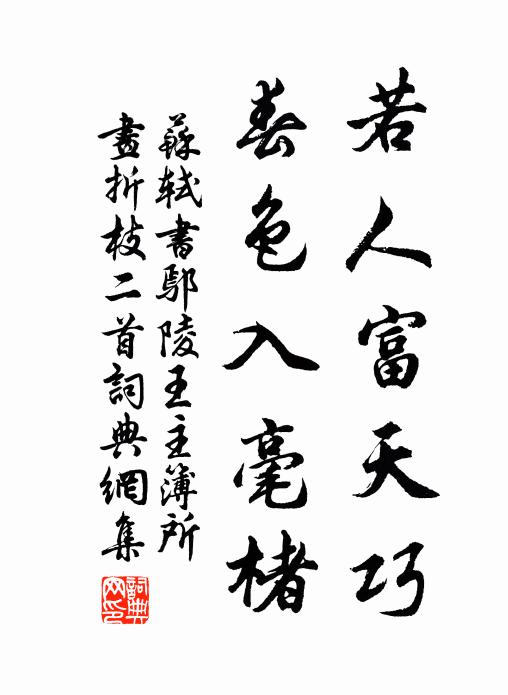 若人富天巧
春色入毫楮
蘇軾書鄢陵王主簿所
畫折枝二首詞典網集
詞典
网印